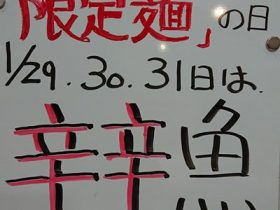 「限定麺」の日
1/29.30.31日は.
辛辛魚